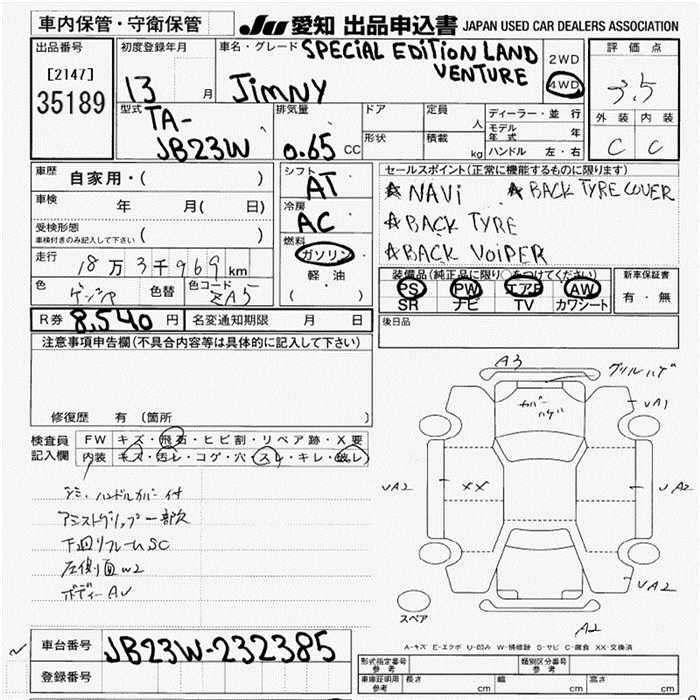 車内保管・守衛保管
JU 愛知 出品申込書 JAPAN USED CAR DEALERS ASSOCIATION
出品番号
[2147]
35189
初度登録年月
13 月
車名・グレード SPECIAL EDITION LAND
VENTURE
JIMNY
2WD
4WD
評価点
3.5
外装 内装
C C
型式 TA-
JB23W
排気量
0.65 CC
ドア
形状
定員 人
積載 kg
ディーラー・並行
モデル年式 年
ハンドル 左・右
車歴 自家用・( )
車検 年 月( 日)
受検形態
車検付きのみ記入して下さい ( )
走行 18万3千969km
色 色替 色コード ZA5
シフト AT
冷房 AC
燃料
ガソリン
軽油
( )
セールスポイント(正常に機能するものに限ります)
☆NAVi ☆BACK TYRE COVER
☆BACK TYRE
☆BACK VOIPER
装備品(純正品に限り○をつけてください)
PS PW エアB AW
SR ナビ TV カワシート
新車保証書
有・無
R券 8,540円 名変通知期限 月 日
後日品
注意事項申告欄(不具合内容等は具体的に記入して下さい)
修復歴 有(箇所 )
検査員記入欄
FW キズ・飛石・ヒビ割・リペア跡・X要
内装 キズ・汚レ・コゲ・穴・スレ・キレ・破レ
ハンドルカバー付
アシストグリップ一部欠
下回リフレームSC
左側面W2
ボディーAU
A3 グリルハゲ
カバーハゲ
UA1
UA2 XX UA2
UA2
A2
スペア
A-キズ E-エクボ U-凹み W-補修跡 S-サビ C-腐食 XX-交換済
車台番号 JB23W-232385
登録番号
型式指定番号 参考
類別区分番号 参考
車庫証明用 参考 長さ cm 幅 cm 高さ cm